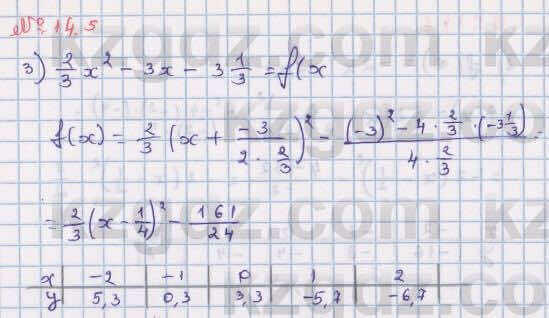 № 14.5
3) 2/3 x² - 3x - 3 1/3 = f(x
f(x) = 2/3 (x + -3/(2 · 2/3))² - ((-3)² - 4 · 2/3 · (-3 1/3))/(4 · 2/3) =
= 2/3 (x - 1/4)² - 161/24
x | -2 | -1 | 0 | 1 | 2
y | 5,3 | 0,3 | 3,3 | -5,7 | -6,7
kzgdz.com